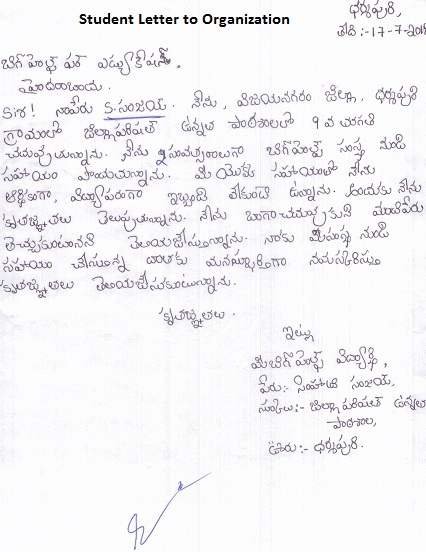 Student Letter to Organization
ధర్మపురి,
తేది:-17-7-201
బిగ్ హెల్ప్ ఫర్ ఎడ్యుకేషన్,
హైదరాబాదు.
Sir! నాపేరు S.సంజయ్. నేను, విజయనగరం జిల్లా, ధర్మపురి
గ్రామంలో జిల్లాపరిషత్ ఉన్నత పాఠశాలలో 9వ తరగతి
చదువుతున్నాను. నేను 2సంవత్సరాలుగా బిగ్ హెల్ప్ సంస్థ నుండి
సహాయం పొందుతున్నాను. మీ యొక్క సహాయంతో నేను
ఆర్థికంగా, విద్యాపరంగా ఇబ్బంది లేకుండా ఉన్నాను. అందుకు నేను
కృతజ్ఞతలు తెలుపుతున్నాను. నేను బాగాచదువుకుని మంచిపేరు
తెచ్చుకుంటానని తెలియజేస్తున్నాను. నాకు మీసంస్థ నుండి
సహాయం చేస్తున్న దాతకు మనస్ఫూర్తిగా నమస్కరిస్తూ
కృతజ్ఞతలు తెలియజేసుకుంటున్నాను.
కృతజ్ఞతలు.
ఇట్లు
మీబిగ్ హెల్ప్ విద్యార్థి,
పేరు:- సింహాద్రి సంజయ్,
స్కూలు:- జిల్లాపరిషత్ ఉన్నత
పాఠశాల,
ఊరు:- ధర్మపురి.